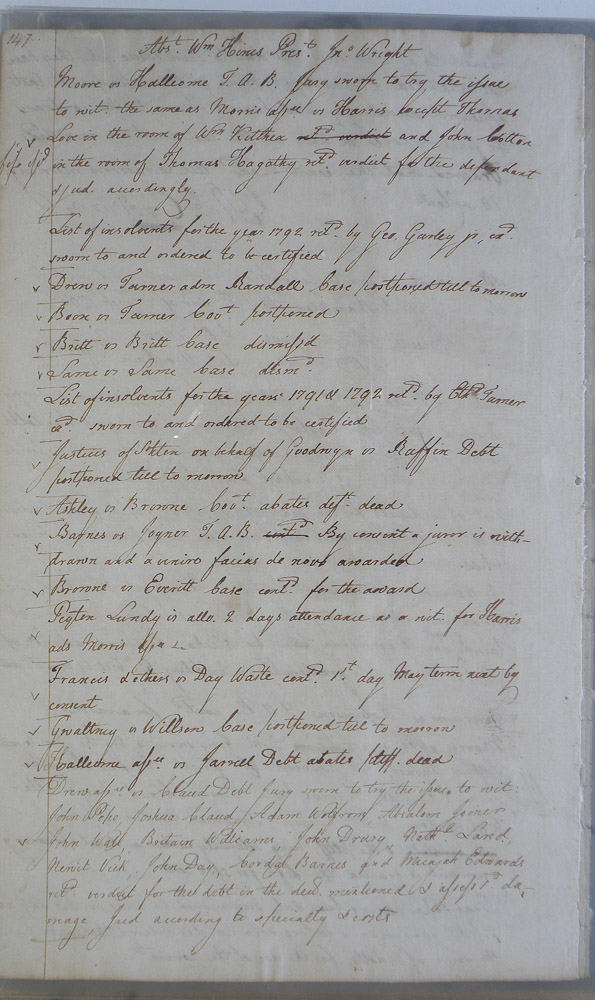 147
Abst. Wm Hines Prest. Jno Wright
Moore vs Hallcome T. A. B. Jury sworn to try the issue
to wit. the same as Morris assee vs Harris except Thomas
Love in the room of Wm Kitthea retd verdict and John Cotton
in the room of Thomas Hagathy retd verdict for the defendant
& jud. accordingly.
List of insolvents for the year 1792 retd. by Geo. Gurley jr,
sworn to and ordered to be certified
Drew vs Turner adm Randall Case postponed till to morrow
Boon vs Turner Covt. postponed
Britt vs Britt Case dismissd
Same vs Same Case dismd.
List of insolvents for the years 1791 & 1792 retd. by Turner
sworn to and ordered to be certified
Justices of Sohton on behalf of Goodwyn vs Ruffin Debt
postponed till to morrow
Ashley vs Browne Covt. abates deft. dead
Barnes vs Joyner T. A. B. contd By consent a juror is with-
drawn and a venire facias de novo awarded
Browne vs Everitt Case contd. for the award
Peyton Lundy is allo. 2 days attendance as a wit. for Harris
ads Morris assee
Francis & others vs Day Waste contd. 1st. day May term next by
consent
Gwaltney vs Willson Case postponed till to morrow
Hallcome assee vs Jarrell Debt abates plff. dead
Drew assee vs Claud Debt Jury sworn to try the issue to wit.
John Pope, Joshua Claud, Adam Woodrom Absalom Joiner
John Wall, Britain Williams, John Drury, Nathl. Land,
Newit Vick, John Day, Cordal Barnes and Micajah Edwards
retd. verdict for the debt in the decl. mentioned & assess 1d. da-
mage, Jud according to specialty & costs